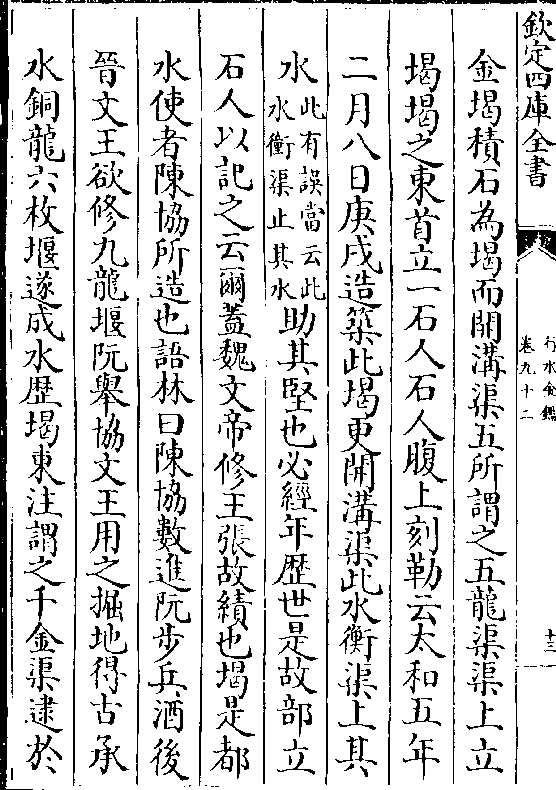 欽定四庫全書
行水金鑑
卷九十二
十三
金堨積石為堨而開溝渠五所謂之五龍渠渠上立
堨堨之東首立一石人石人腹上刻勒云太和五年
二月八日庚戌造築此堨更開溝渠此水衡渠上其
水此有誤當云此水衡渠止其水助其堅也必經年歴世是故部立
石人以記之云爾蓋魏文帝修王張故績也堨是都
水使者陳協所造也語林曰陳協數進阮步兵酒後
晉文王欲修九龍堰阮舉協文王用之掘地得古承
水銅龍六枚堰遂成水歴堨東注謂之千金渠逮於